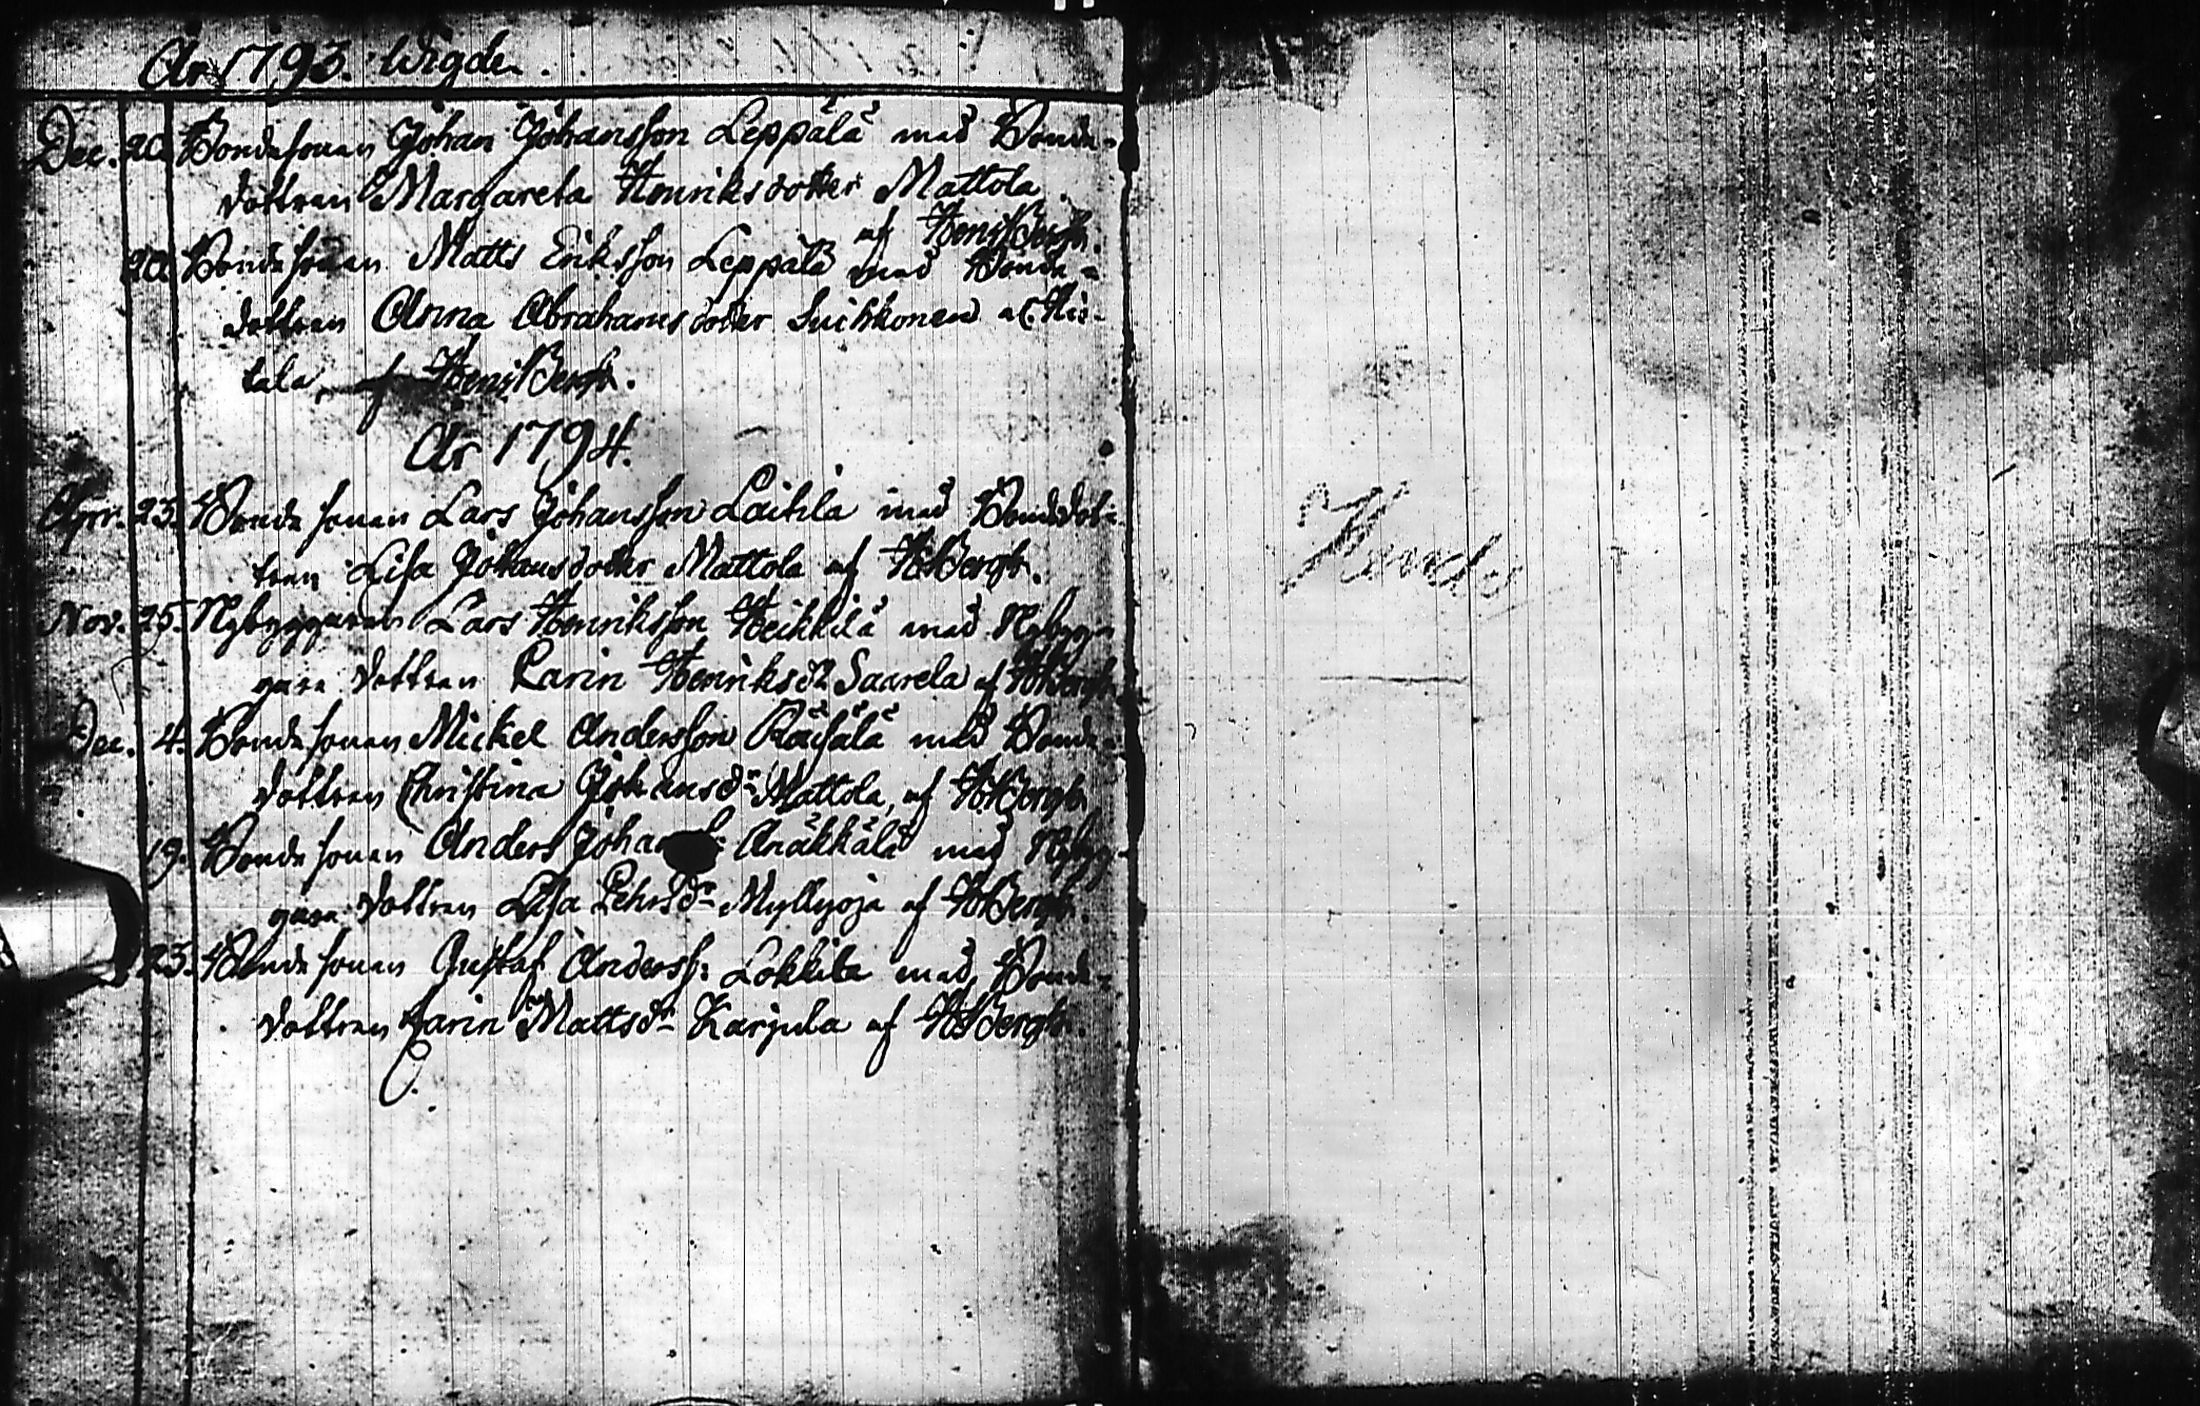 År 1793. Wigde.
Dec. 20. Bondesonen Johan Johansson Leppälä med Bonde-
dottren Margareta Henriksdotter Mattola
af Hen: Bergh.
20. Bondesonen Matts Eriksson Leppälä med Bonde-
dottren Anna Abrahamsdotter Suikkonen
tala, af Hen: Bergh.
År 1794.
Apr. 23. Bondesonen Lars Johansson Laitila med Bondedot-
tren Lisa Johansdotter Mattola af H: Bergh.
Nov. 25. Nybyggaren Lars Henriksson Heikkilä med Nybyg-
gare dottren Karin Henriksdr Saarela af H: Bergh.
Dec. 4. Bondesonen Mickel Andersson Räisälä med Bonde-
dottren Christina Johansdr Mattola, af H: Bergh.
19. Bondesonen Anders Johan Anäkkälä med Nybyg-
gare dottren Lisa Pehrsdr Myllyoja af H: Bergh.
23. Bondesonen Gustaf Anderss: Lokkila med Bonde-
dottren Karin Mattsdr Karjula af H: Bergh.